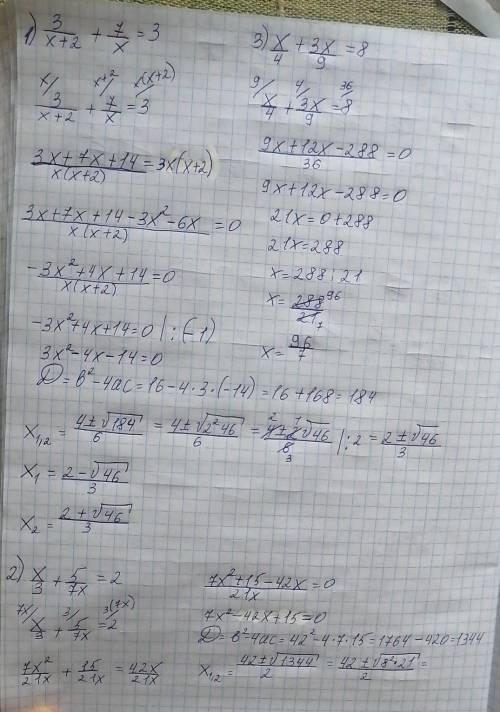 1) 3/(x+2) + 7/x = 3
x/ x+2/ x(x+2)/
3/(x+2) + 7/x = 3
(3x+7x+14)/(x(x+2)) = 3x(x+2)
(3x+7x+14-3x²-6x)/(x(x+2)) = 0
(-3x²+4x+14)/(x(x+2)) = 0
-3x²+4x+14=0 |:(-1)
3x²-4x-14=0
D = b²-4ac = 16-4·3·(-14) = 16+168 = 184
x₁,₂ = (4±√184)/6 = (4±√2²46)/6 = (4±2√46)/6 |:2 = (2±√46)/3
x₁ = (2-√46)/3
x₂ = (2+√46)/3
3) x/4 + 3x/9 = 8
9/ 4/ 36/
x/4 + 3x/9 = 8
(9x+12x-288)/36 = 0
9x+12x-288=0
21x=0+288
21x=288
x=288:21
x= 288 96/21 7
x= 96/7
2) x/3 + 5/7x = 2
7x/ 3/ 3(7x)/
x/3 + 5/7x = 2
7x²/21x + 15/21x = 42x/21x
(7x²+15-42x)/21x = 0
7x²-42x+15=0
D=b²-4ac=42²-4·7·15=1764-420=1344
x₁,₂ = (42±√1344)/2 = (42±√8²·21)/2 =